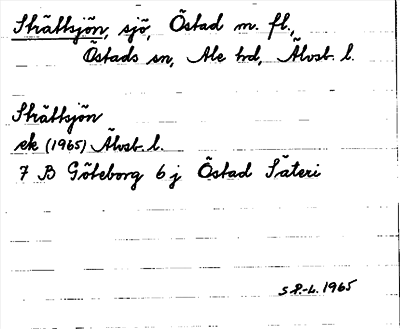 Skrättsjön, sjö, Östad m. fl.,
Östads sn, Ale hd, Älvsb. l.
Skrättsjön
ek (1965) Älvsb. l.
7 B Göteborg 6 j Östad Säteri
S P.-L. 1965